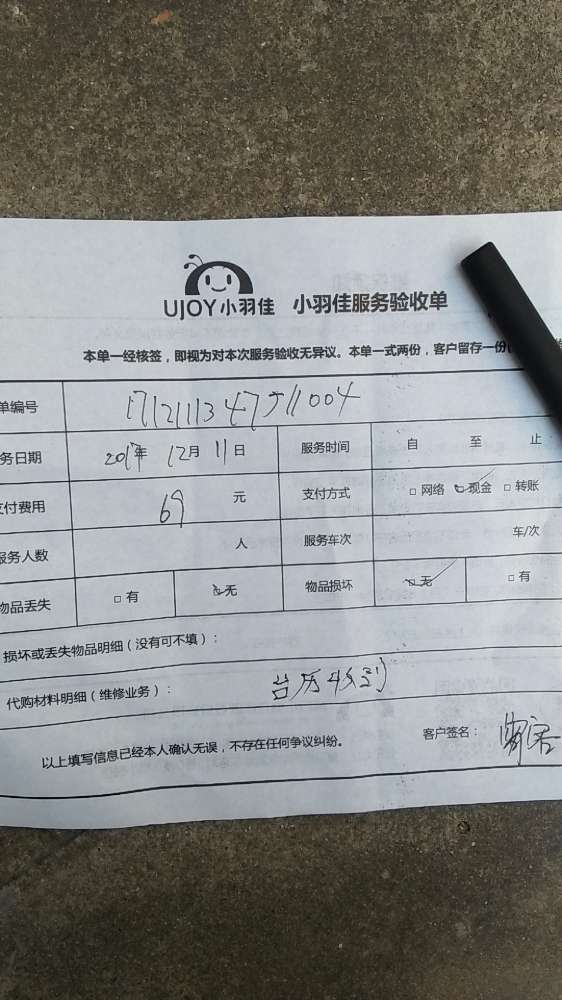 UJOY小羽佳 小羽佳服务验收单
本单一经核签，即视为对本次服务验收无异议。本单一式两份，客户留存一份
单编号
务日期 2017年 12月 11日 服务时间 自 至 止
支付费用 69 元 支付方式 □ 网络 □ 现金 □ 转账
服务人数 人 服务车次 车/次
物品丢失 □ 有 □ 无 物品损坏 □ 无 □ 有
损坏或丢失物品明细（没有可不填）：
代购材料明细（维修业务）： 台历收到
以上填写信息已经本人确认无误，不存在任何争议纠纷。 客户签名：